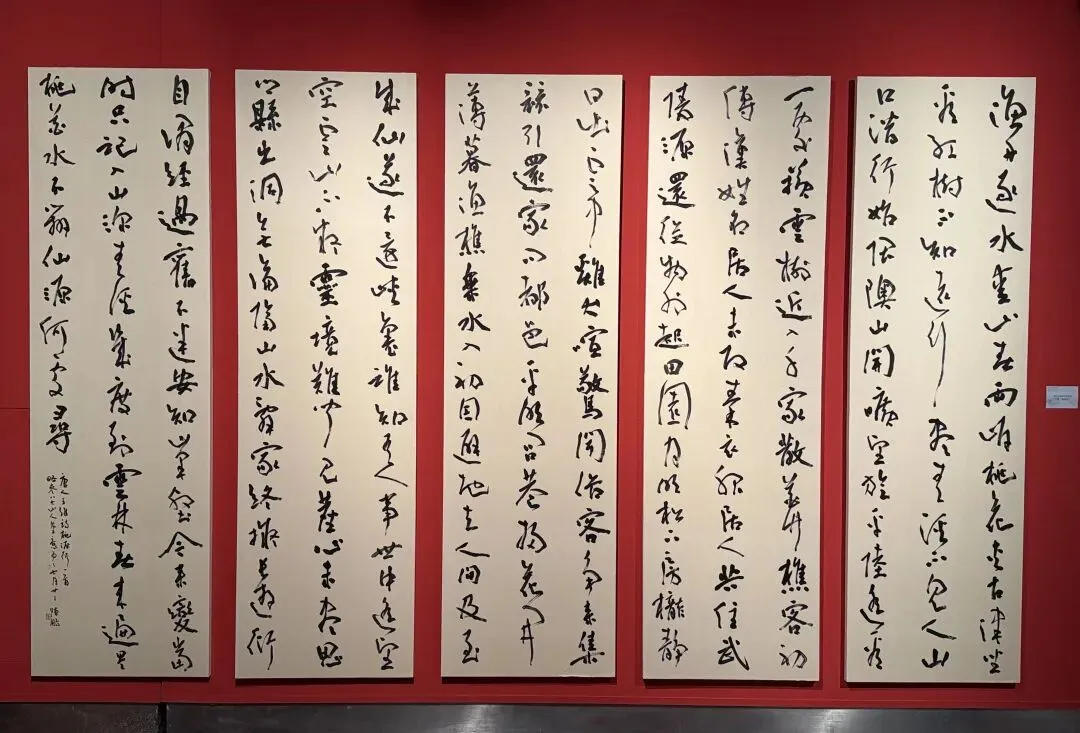 漁舟逐水愛山春兩岸桃花夾古津坐
看紅樹不知遠行盡青溪不見人山
口潛行始隈隩山開曠望旋平陸遙看
一處攢雲樹近入千家散花竹樵客初
傳漢姓名居人未改秦衣服居人共住武
陵源還從物外起田園月明松下房櫳靜
日出雲中雞犬喧驚聞俗客爭來集
競引還家問都邑平明閭巷掃花開
薄暮漁樵乘水入初因避地去人間及至
成仙遂不還峽裏誰知有人事世中遙望
空雲山不疑靈境難聞見塵心未盡思
鄉縣出洞無論隔山水辭家終擬長遊衍
自謂經過舊不迷安知峯壑今來變當
時只記入山深青溪幾度到雲林春來遍是
桃花水不辨仙源何處尋
唐人王維詩桃源行一首